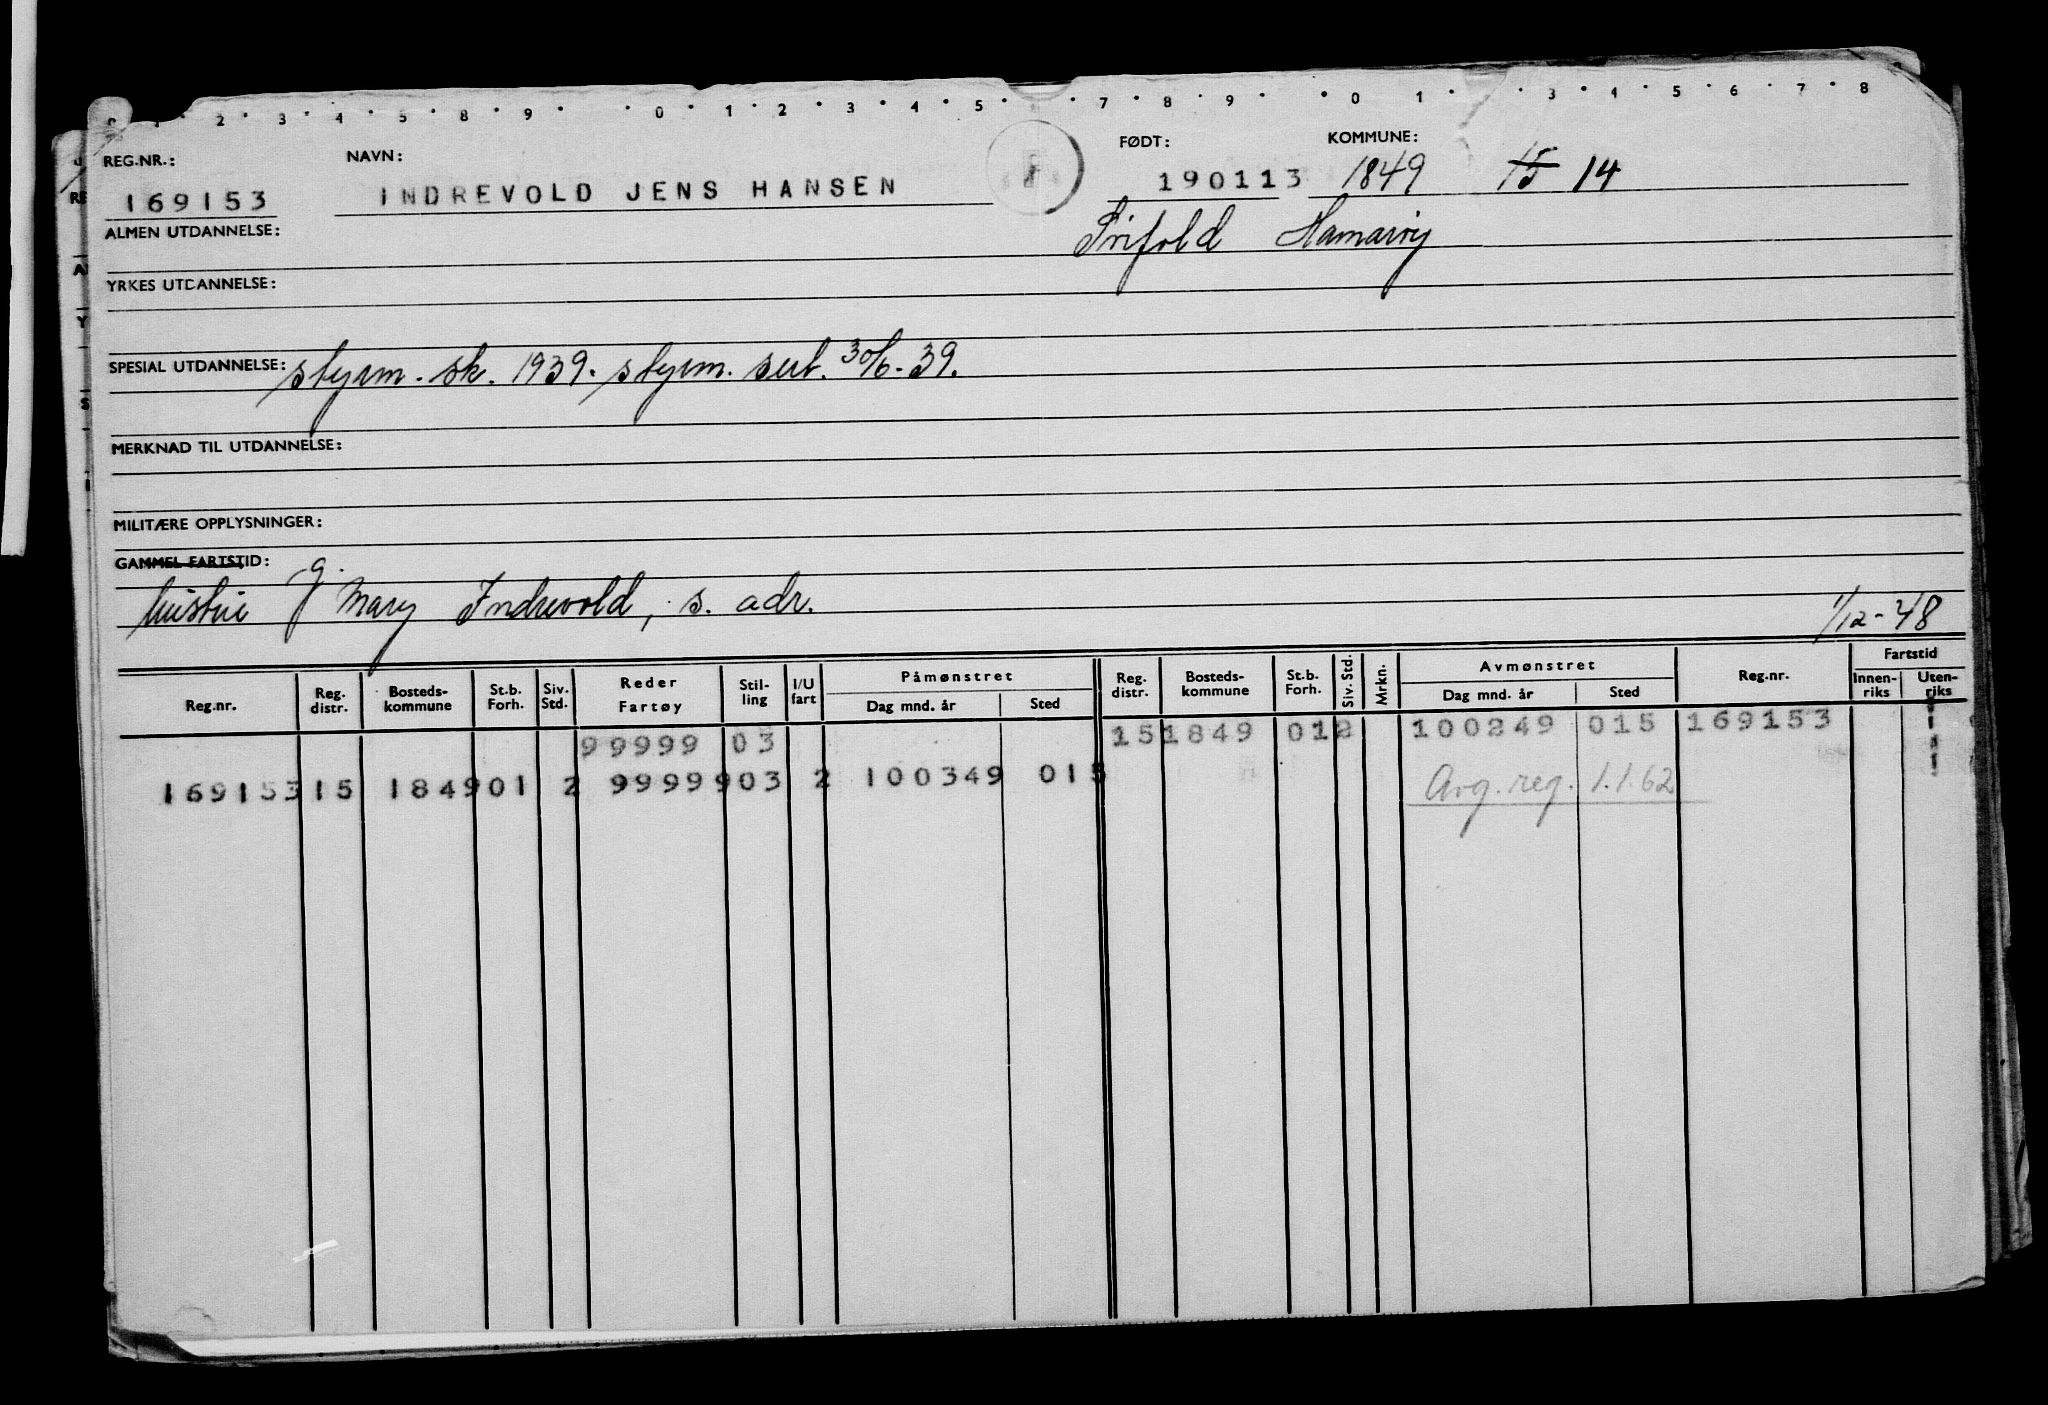 2 3 4 5 8 9 0 1 2 3 4 5 7 8 9 0 1 3 4 5 6 7 8
REG.NR.: NAVN: FØDT: KOMMUNE:
169153 INDREVOLD JENS HANSEN 190113 1849 15 14
ALMEN UTDANNELSE: Hamarøy
YRKES UTDANNELSE:
SPESIAL UTDANNELSE: styrm. sk. 1939. styrm. sert. 30/6-39.
MERKNAD TIL UTDANNELSE:
MILITÆRE OPPLYSNINGER:
GAMMEL FARTSTID: g.
hustru Mary Indrevold, s. adr. 1/12-48
Reg.nr. Reg. distr. Bosteds-kommune St.b. Forh. Siv. Std. Reder Fartøy Stil-ling I/U fart Påmønstret Dag mnd. år Sted Reg. distr. Bosteds-kommune St.b. Forh. Siv. Std. Mrkn. Avmønstret Dag mnd. år Sted Reg.nr. Fartstid Innen-riks Uten-riks
99999 03 15 1849 01 2 100249 015 169153
169153 15 1849 01 2 99999 03 2 100349 015 Avg. reg. 1.1.62